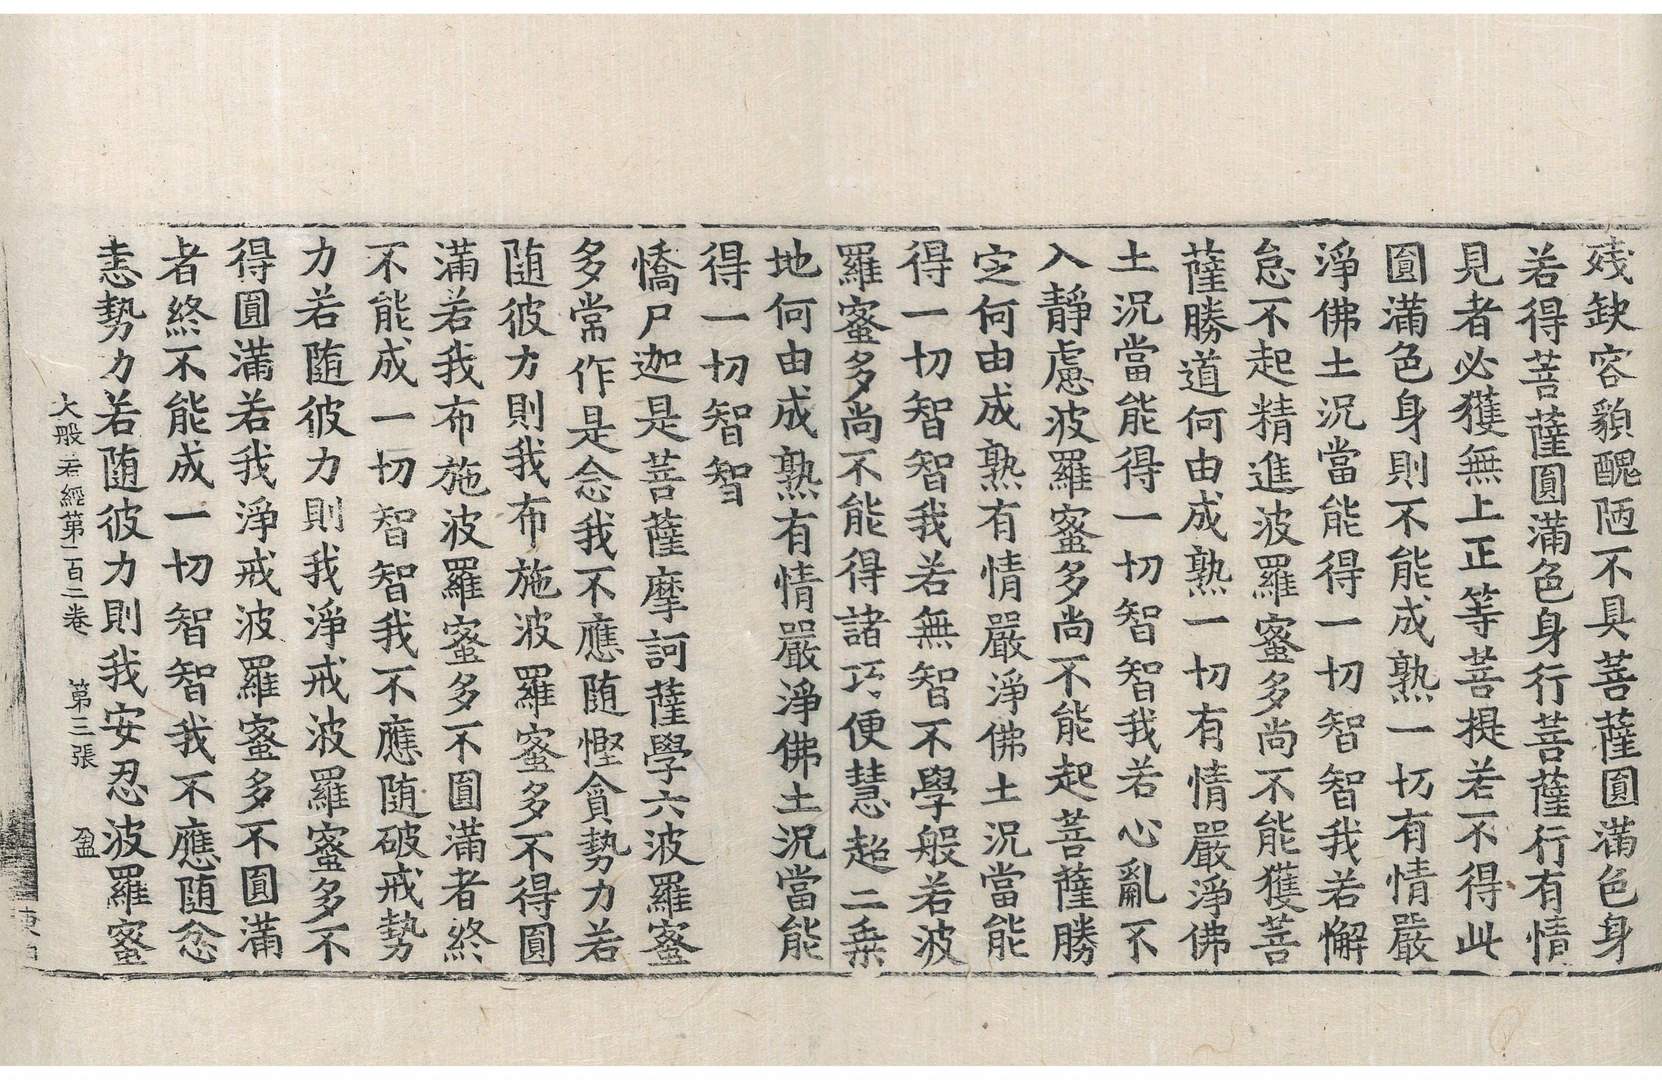 殘缺容貌醜陋不具菩薩圓滿色身
若得菩薩圓滿色身行菩薩行有情
見者必獲無上正等菩提若不得此
圓滿色身則不能成熟一切有情嚴
淨佛土況當能得一切智智我若懈
怠不起精進波羅蜜多尚不能獲菩
薩勝道何由成熟一切有情嚴淨佛
土況當能得一切智智我若心亂不
入靜慮波羅蜜多尚不能起菩薩勝
定何由成熟有情嚴淨佛土況當能
得一切智智我若無智不學般若波
羅蜜多尚不能得諸巧便慧超二乘
地何由成熟有情嚴淨佛土況當能
得一切智智
憍尸迦是菩薩摩訶薩學六波羅蜜
多常作是念我不應随慳貪勢力若
随彼力則我布施波羅蜜多不得圓
滿若我布施波羅蜜多不圓滿者終
不能成一切智智我不應随破戒勢
力若随彼力則我淨戒波羅蜜多不
得圓滿若我淨戒波羅蜜多不圓滿
者終不能成一切智智我不應随忿
恚勢力若随彼力則我安忍波羅蜜
大般若經第一百二卷 第三張 盈